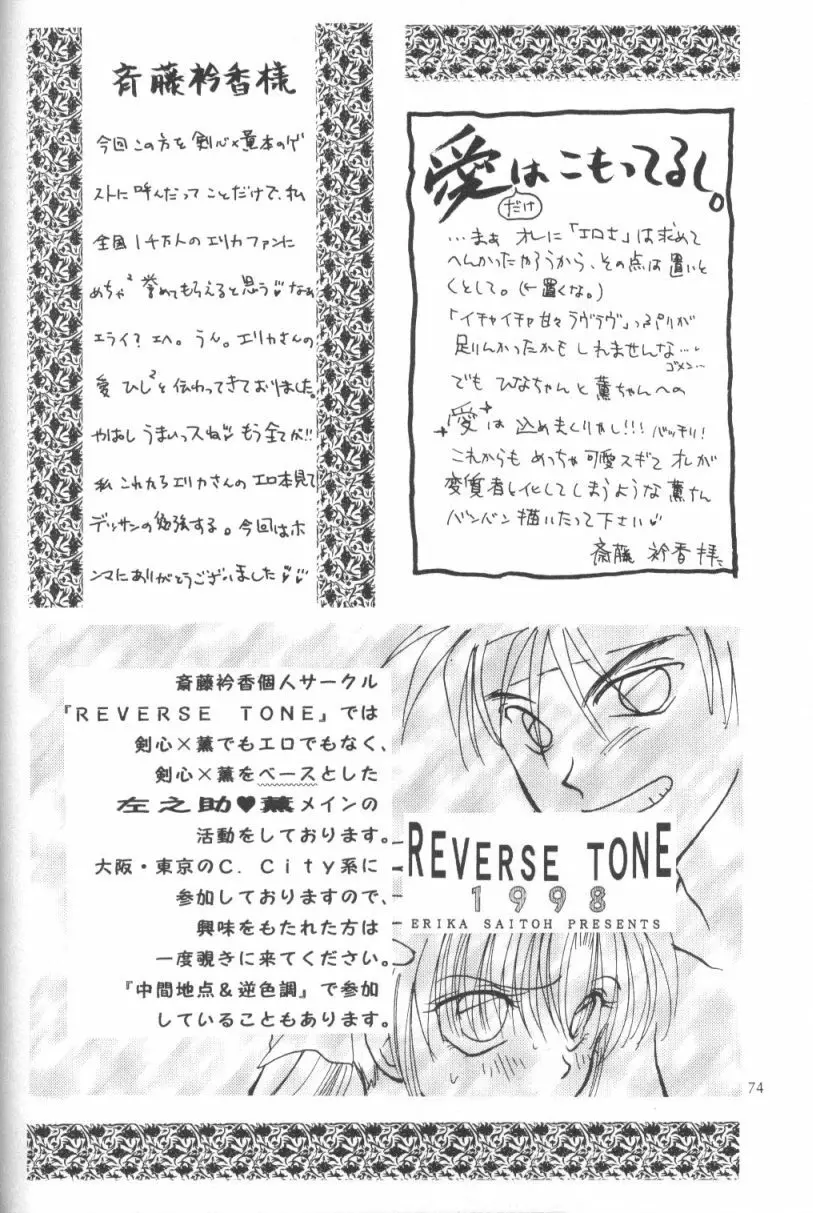 斉藤衿香様
今回この方を剣心×薫本のゲ
ストに呼んだってことだけで、私
全国1千万人のエリカファンに
めちゃ²誉めてもらえると思う♡なぁ
エライ?エへ。うん。エリカさんの
愛ひし²と伝わってきておりました。
やはしうまいっスね♡もう全てが!!
私これからエリカさんのエロ本見て
デッサンの勉強する。今回はホ
ンマにありがとうございました♡♡
愛はこもってるし。
だけ
…まぁ オレに「エロさ」は求めて
へんかったやろうから、その点は置いと
くとして。(←置くな。)
「イチャイチャ甘々ラヴラヴ」っぷりが
足りんかったかもしれませんな…
ゴメン…
でも ひなちゃんと薫ちゃんへの
愛は込めまくりやし!!! バッチリ!
これからも めっちゃ可愛スギて オレが
変質者と化してしまうような薫さん
バンバン描いたって下さい♡
斎藤 衿香拝
斎藤衿香個人サークル
『REVERSE TONE』では
剣心×薫でもエロでもなく、
剣心×薫をベースとした
左之助♥薫メインの
活動をしております。
大阪・東京のC.City系に
参加しておりますので、
興味をもたれた方は
一度覗きに来てください。
『中間地点&逆色調』で参加
していることもあります。
REVERSE TONE
1998
ERIKA SAITOH PRESENTS
74